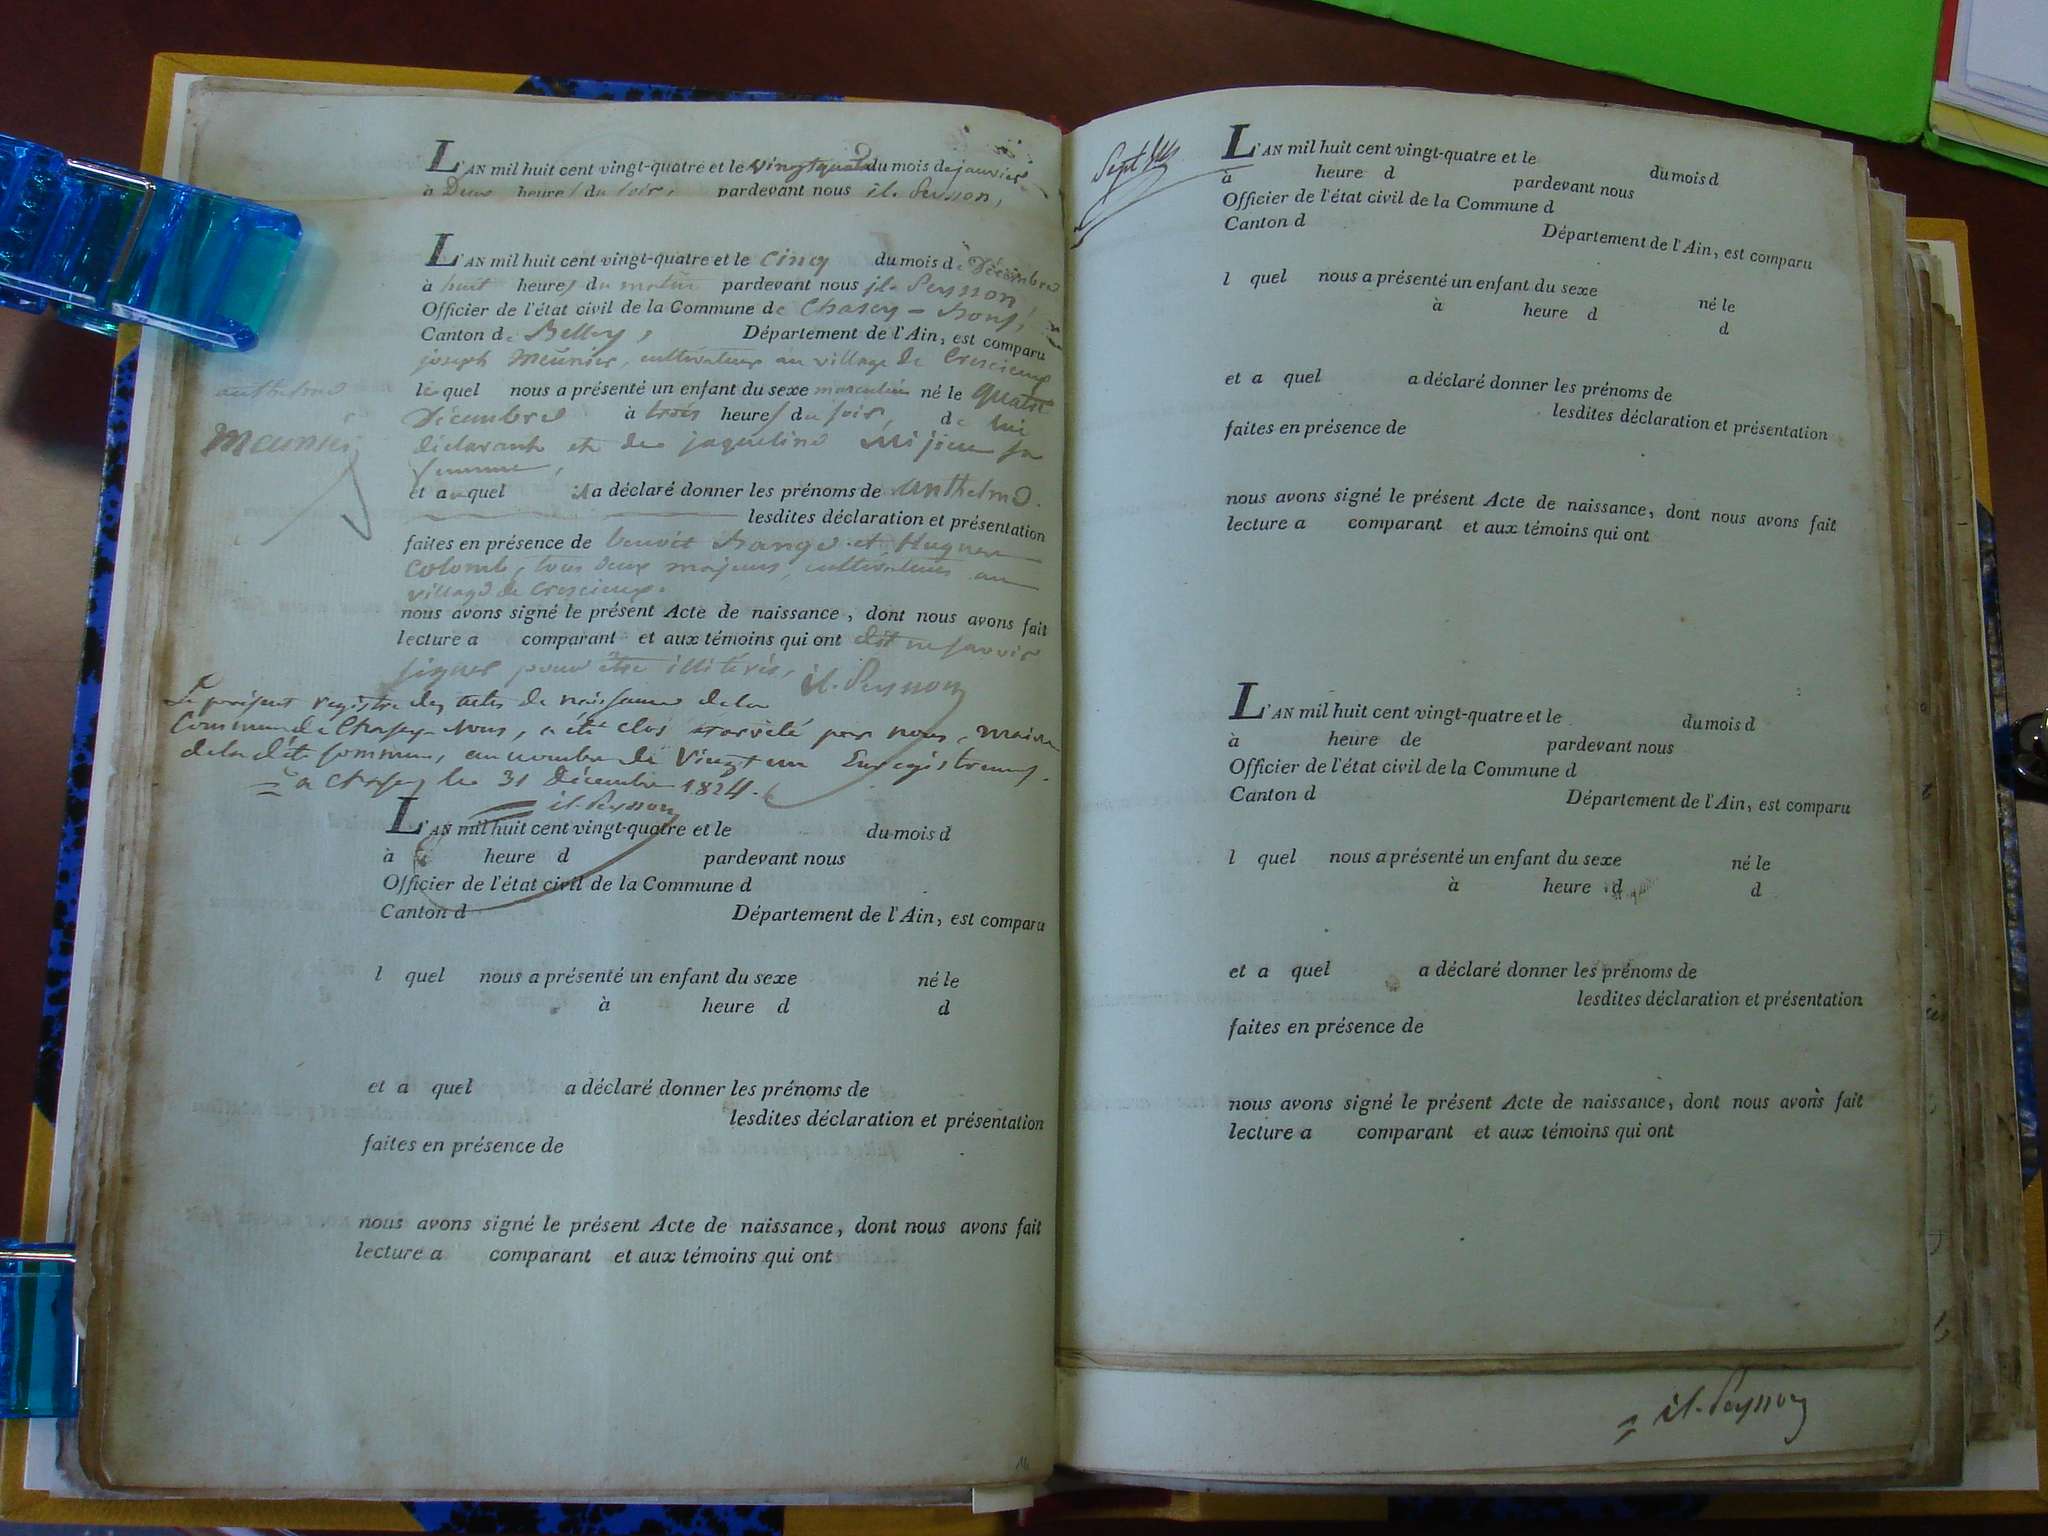 L'AN mil huit cent vingt-quatre et le vingtquatre du mois de janvier
à Deux heures du soir, pardevant nous il. Peysson,
L'AN mil huit cent vingt-quatre et le cinq du mois de Décembre
à huit heures du matin pardevant nous il. Peysson
Officier de l'état civil de la Commune de Chasey-Bons,
Canton de Belley, Département de l'Ain, est comparu
joseph Meunier, cultivateur au village de Crescieux
lequel nous a présenté un enfant du sexe masculin né le quatre
Décembre à trois heures du soir, de lui
déclarant et de jaqueline sa
femme,
et auquel il a déclaré donner les prénoms de Anthelme.
lesdites déclaration et présentation
faites en présence de benoit et Hugues
Colomb, tous deux majeurs, cultivateurs au
village de Crescieux.
nous avons signé le présent Acte de naissance, dont nous avons fait
lecture a comparant et aux témoins qui ont dit ne savoir
signer pour être illitérés, il. Peysson
anthelme
Meunier
Le présent registre des actes de naissance de la
Commune de Chasey-Bons, a été clos et arrêté par nous, maire
de la dite Commune, au nombre de Vingt un Enregistremens.
a Chasey le 31 Décembre 1824.
il. Peysson
L'AN mil huit cent vingt-quatre et le du mois d
à heure d pardevant nous
Officier de l'état civil de la Commune d
Canton d Département de l'Ain, est comparu
l quel nous a présenté un enfant du sexe né le
à heure d d
et a quel a déclaré donner les prénoms de
lesdites déclaration et présentation
faites en présence de
nous avons signé le présent Acte de naissance, dont nous avons fait
lecture a comparant et aux témoins qui ont
L'AN mil huit cent vingt-quatre et le du mois d
à heure d pardevant nous
Officier de l'état civil de la Commune d
Canton d Département de l'Ain, est comparu
l quel nous a présenté un enfant du sexe né le
à heure d d
et a quel a déclaré donner les prénoms de
lesdites déclaration et présentation
faites en présence de
nous avons signé le présent Acte de naissance, dont nous avons fait
lecture a comparant et aux témoins qui ont
L'AN mil huit cent vingt-quatre et le du mois d
à heure de pardevant nous
Officier de l'état civil de la Commune d
Canton d Département de l'Ain, est comparu
l quel nous a présenté un enfant du sexe né le
à heure d d
et a quel a déclaré donner les prénoms de
lesdites déclaration et présentation
faites en présence de
nous avons signé le présent Acte de naissance, dont nous avons fait
lecture a comparant et aux témoins qui ont
il. Peysson